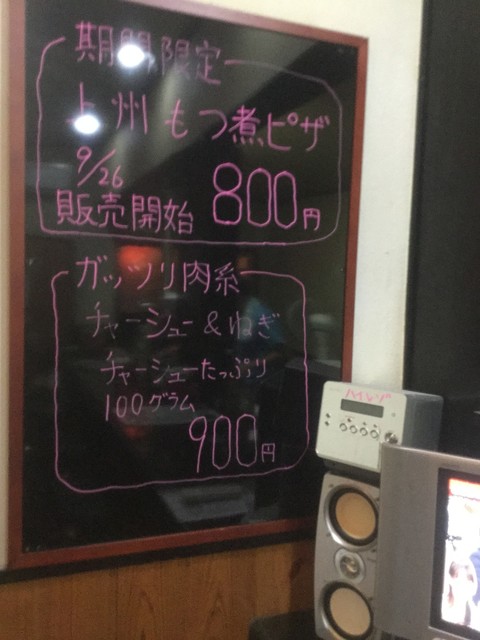 期間限定
上州もつ煮ピザ
9/26
販売開始 800円
ガッツリ肉系
チャーシュー&ねぎ
チャーシューたっぷり
100グラム
900円
ハイレゾ